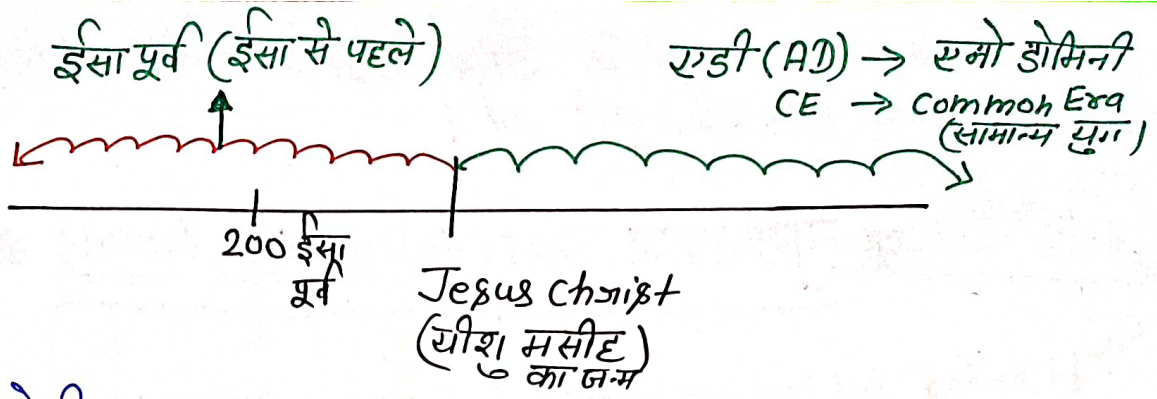 ईसा पूर्व (ईसा से पहले)
एडी (AD) → एनो डोमिनी
CE → Common Era
(सामान्य युग)
200 ईसा
पूर्व
Jesus Christ
(यीशु मसीह)
का जन्म